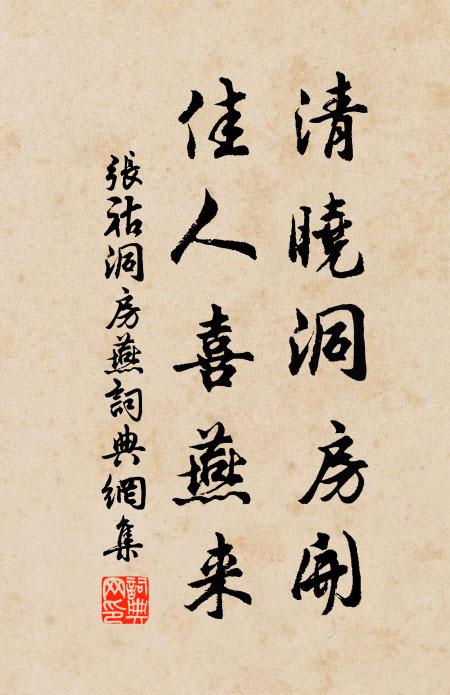 清曉洞房開
佳人喜燕来
張祜洞房燕詞典網集
詞典
网印